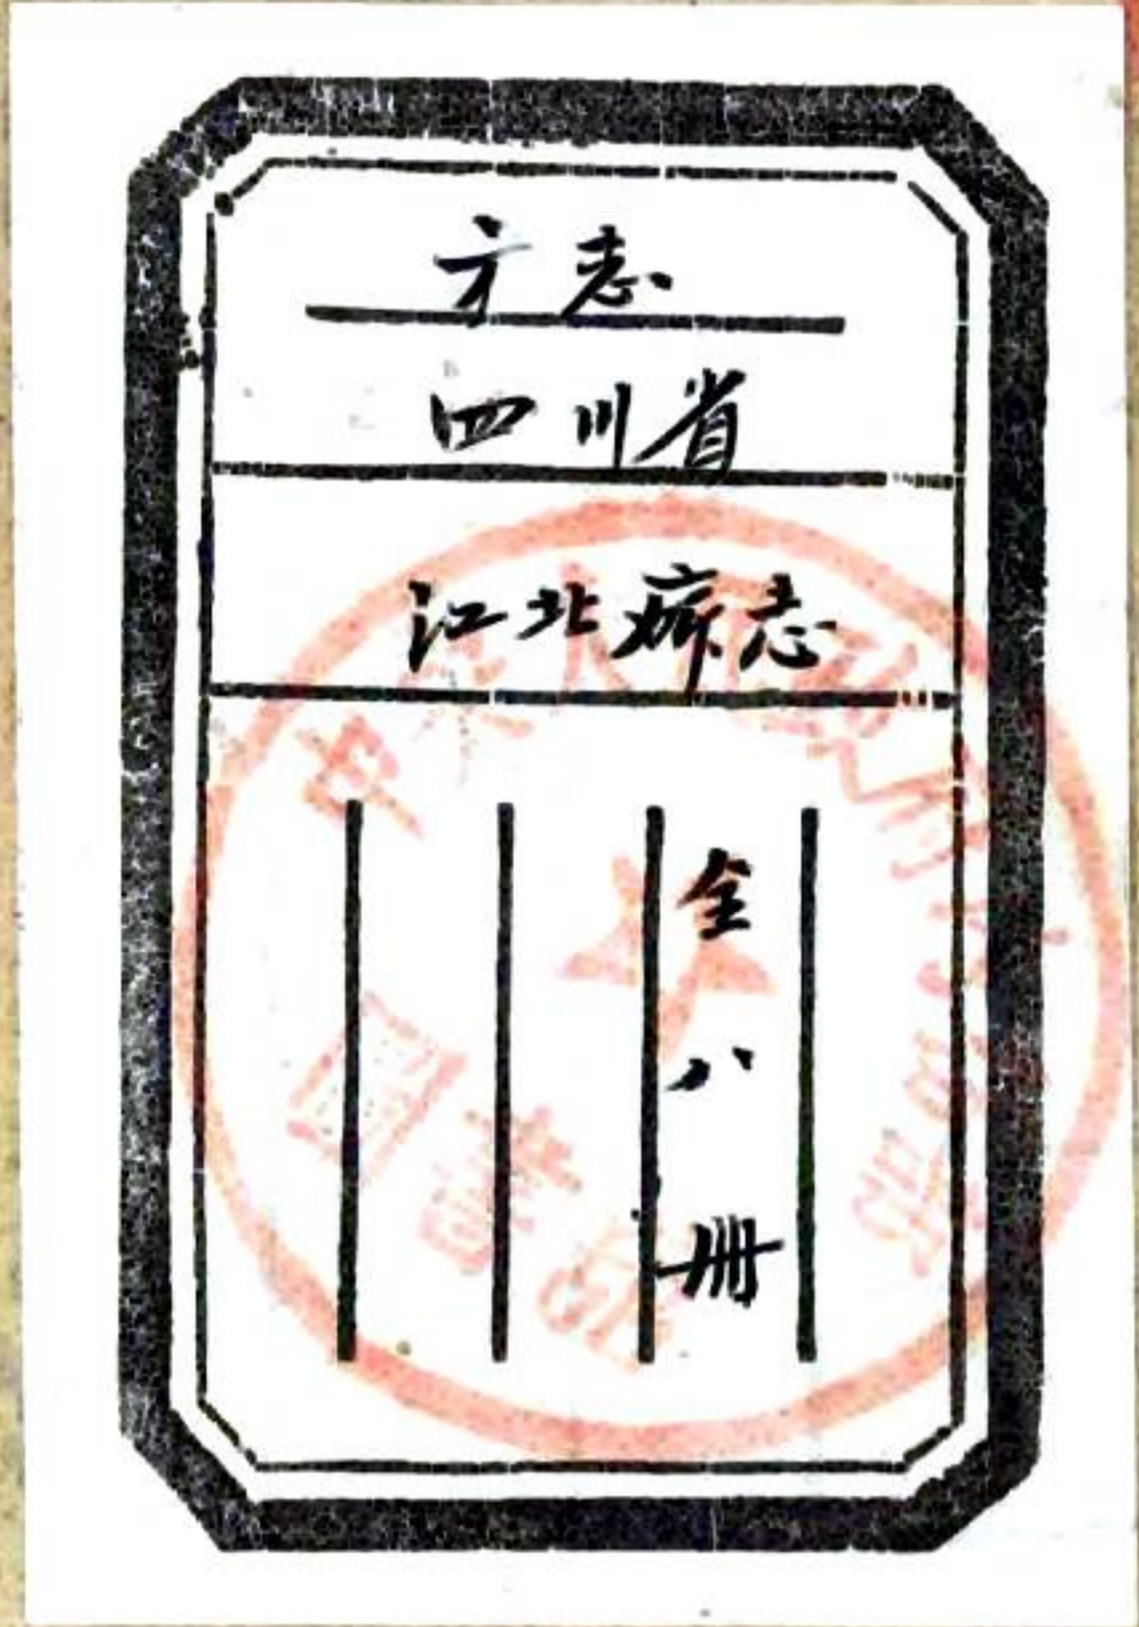 方志
四川省
江北厛志
全八册